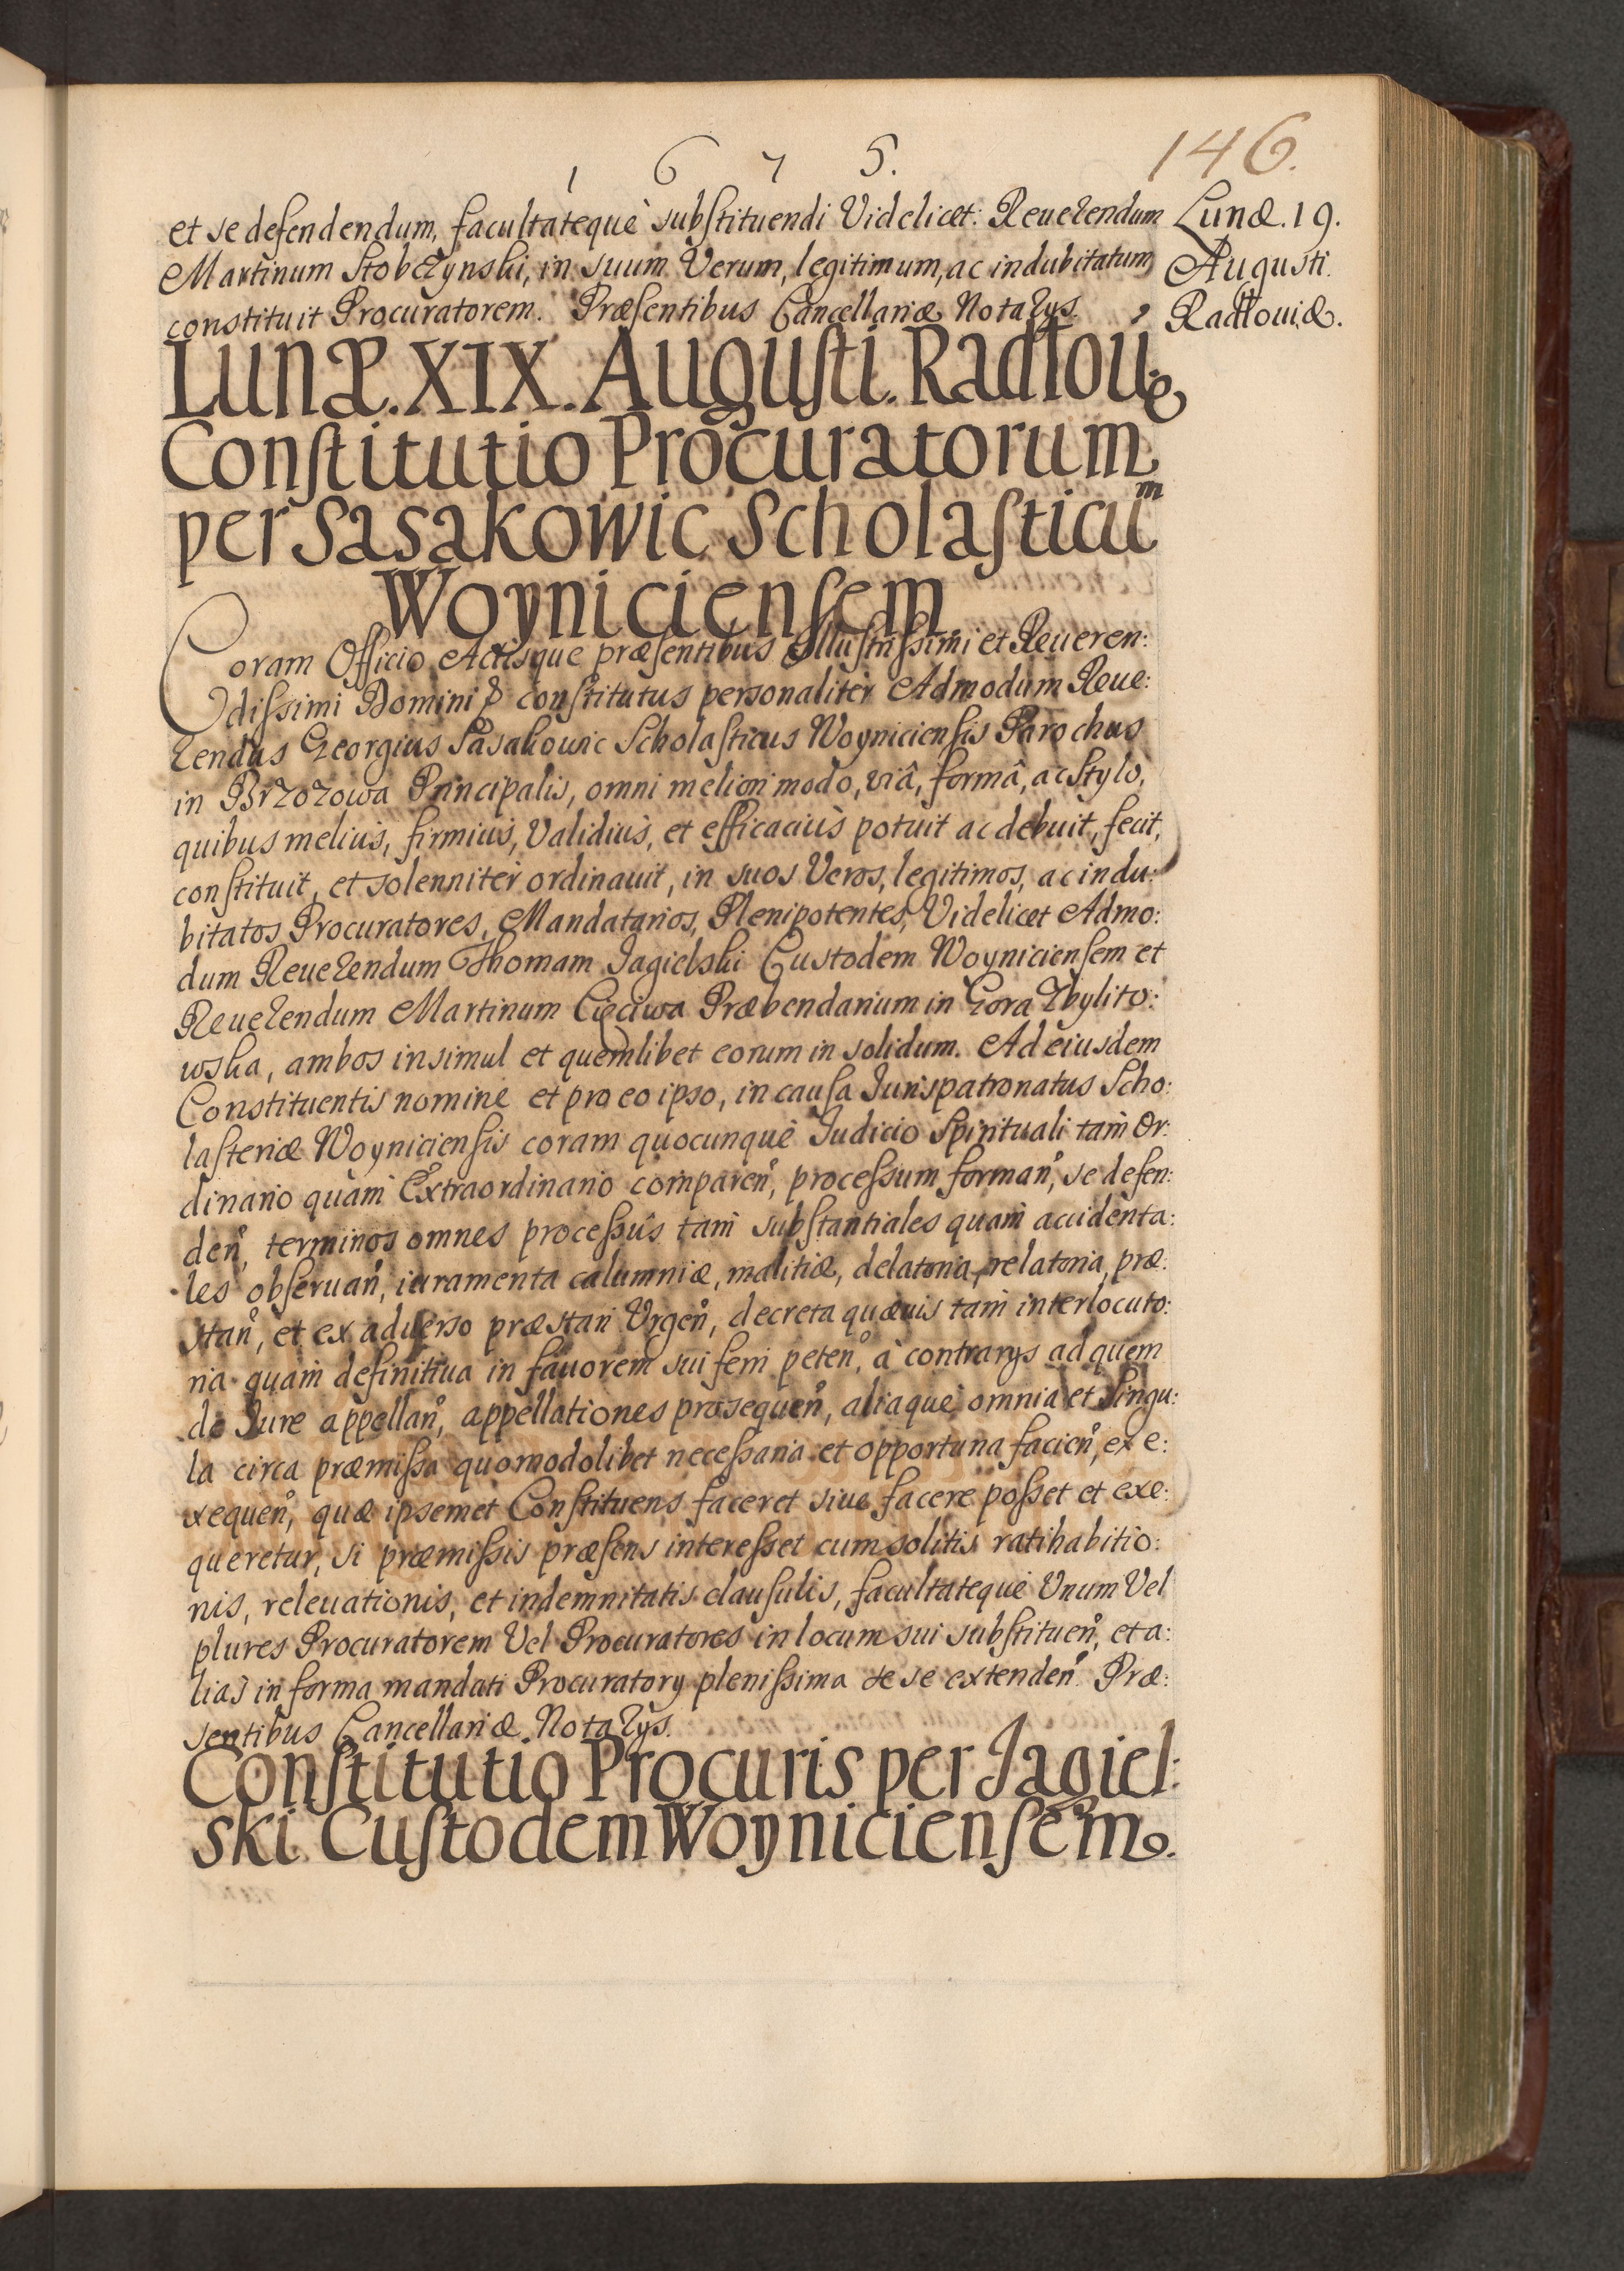 1 6 7 5.
146.
et se defendendum, facultatequè substituendi Videlicet: Reuerendum
Martinum Stobczynski, in suum Verum, legitimum, ac indubitatum
constituit Procuratorem. Præsentibus Cancellariæ Notarys.
Lunæ. 19.
Augusti.
Radłouiæ.
Lunæ. XIX. Augusti. Radłouiæ
Constitutio Procuratorum
per Sasakowic Scholasticum
Woyniciensem
Coram Officio Actisque præsentibus Illustrissimi et Reueren:
dissimi Domini & constitutus personaliter Admodum Reue:
rendus Georgius Sasakouic Scholasticus Woyniciensis Parochus
in Brzozowa Principalis, omni meliori modo, viâ, formâ, ac stylo,
quibus meliùs, firmiùs, Validiùs, et efficaciùs potuit ac debuit, fecit,
constituit, et solennitèr ordinauit, in suos Veros, legitimos, ac indu:
bitatos Procuratores, Mandatarios, Plenipotentes, Videlicet Admo:
dum Reuerendum Thomam Jagielski Custodem Woyniciensem et
Reuerendum Martinum Cięciwa Præbendarium in Gora Zbylito:
wska, ambos insimul et quemlibet eorum in solidum. Ad eiusdem
Constituentis nomine et pro eo ipso, in causa Jurispatronatus Scho:
lasteriæ Woyniciensis coram quocunquè Judicio Spirituali tam Or:
dinario quàm Extraordinario comparen̊, processum forman̊, se defen:
den̊, terminos omnes processûs tam substantiales quàm accidenta:
les obseruan̊, iuramenta calumniæ, malitiæ, delatoria, relatoria, præ:
stan̊, et ex aduerso præstari Vrgen̊, decreta quæuis tam interlocuto:
ria quàm definitiua in fauorem sui ferri peten̊, à contrarys ad quem
de Jure appellan̊, appellationes prosequen̊, aliaquè omnia et singu:
la circa præmissa quomodolibet necessaria et opportuna facien̊, ex e:
xequen̊, quæ ipsemet Constituens faceret siue facere posset et exe:
queretur, si præmissis præsens interesset cum solitis ratihabitio:
nis, releuationis, et indemnitatis clausulis, facultatequè Unum Vel
plures Procuratorem Vel Procuratores in locum sui substituen̊, et a:
liàs in forma mandati Procuratory plenissima de se extenden̊. Præ:
sentibus Cancellariæ Notarys.
Constitutio Procuris per Jagiel:
ski Custodem Woyniciensem.